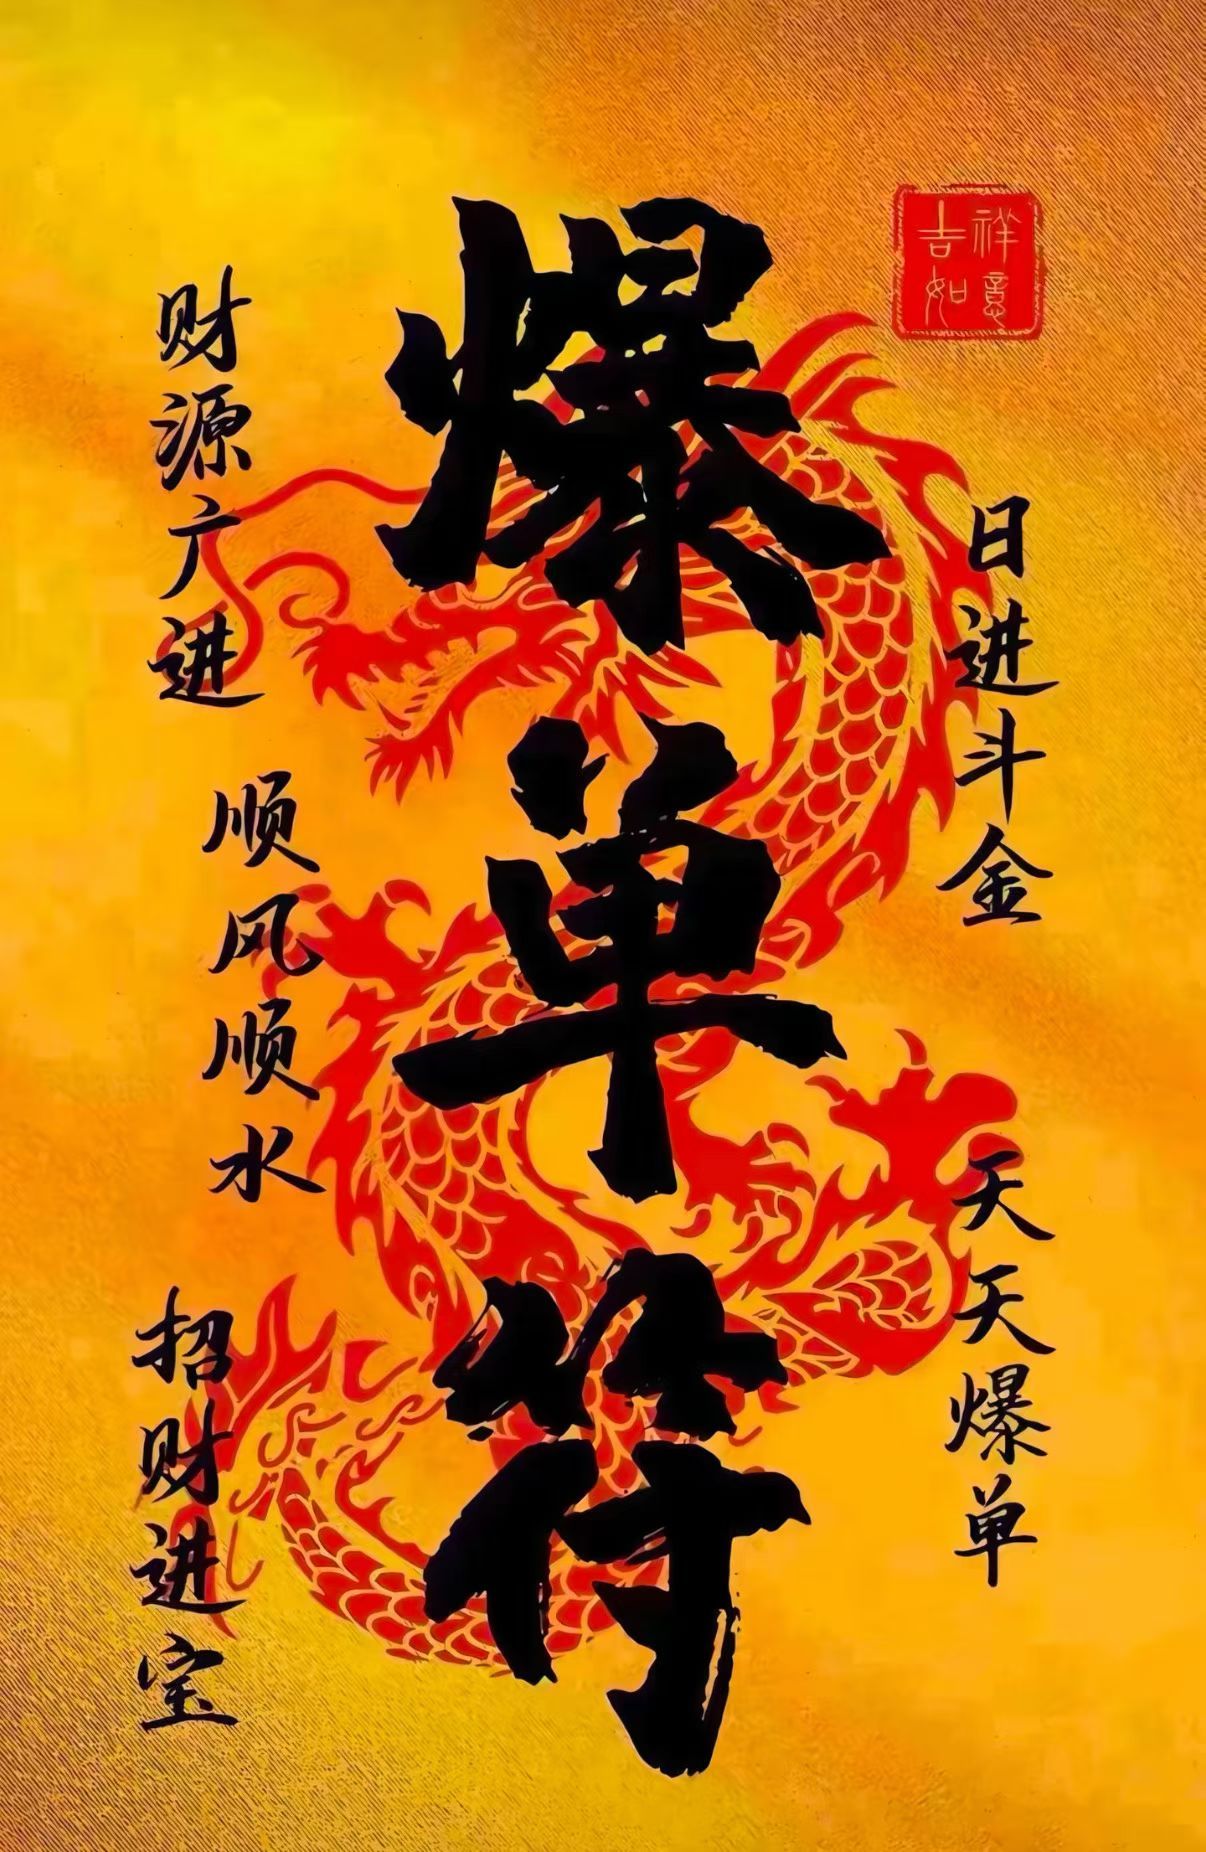 爆单符
吉祥
如意
财源广进
日进斗金
顺风顺水
天天爆单
招财进宝